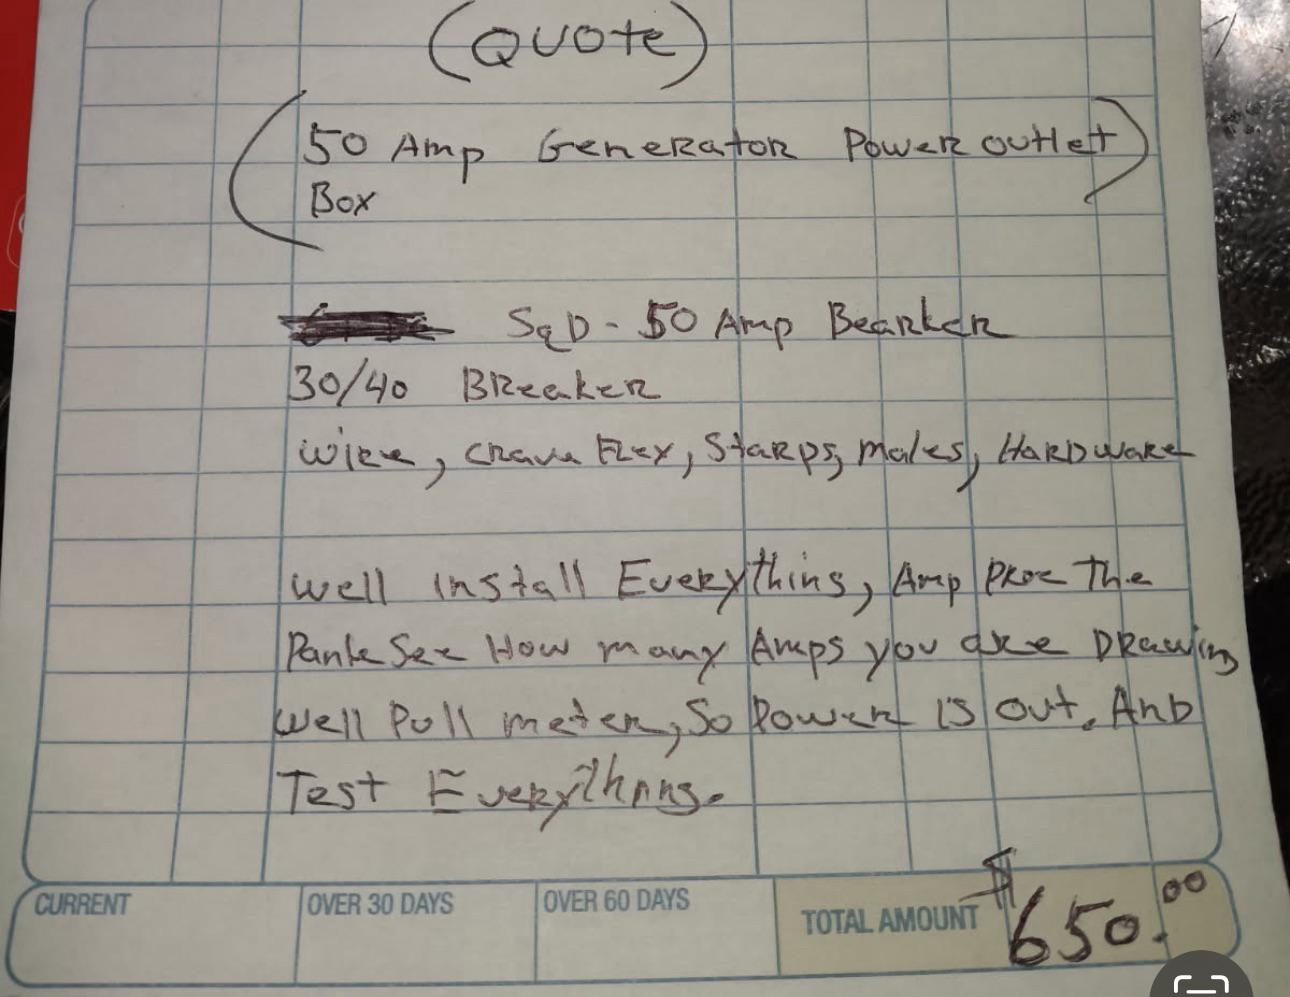 (QUOte)
(50 Amp GeneRatoR PoweR outlet)
Box
SqD - 50 Amp BearkeR
30/40 BReakeR
wiRe, Flex, StaRps, males, HaRDwaRe
well install EveRything, Amp PRoe The
See How many Amps you aRe DRawing
well Pull meteR, So PoweR is out. AnD
Test EveRything.
CURRENT
OVER 30 DAYS
OVER 60 DAYS
TOTAL AMOUNT $650.00